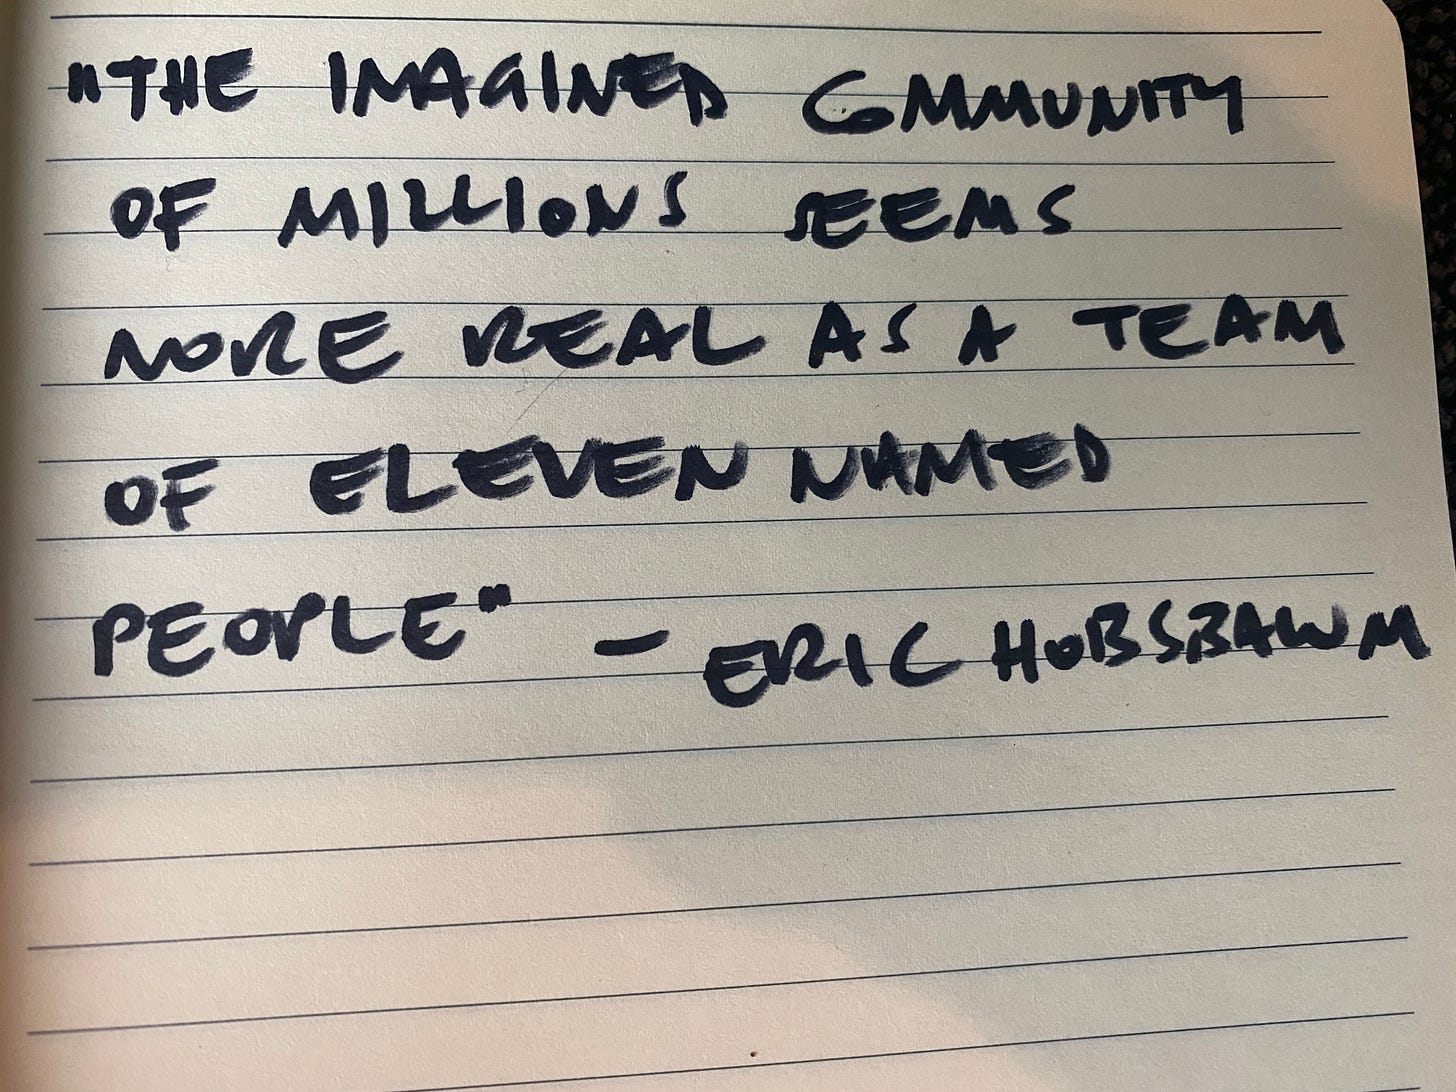 "THE IMAGINED COMMUNITY
OF MILLIONS SEEMS
MORE REAL AS A TEAM
OF ELEVEN NAMED
PEOPLE" - ERIC HOBSBAWM